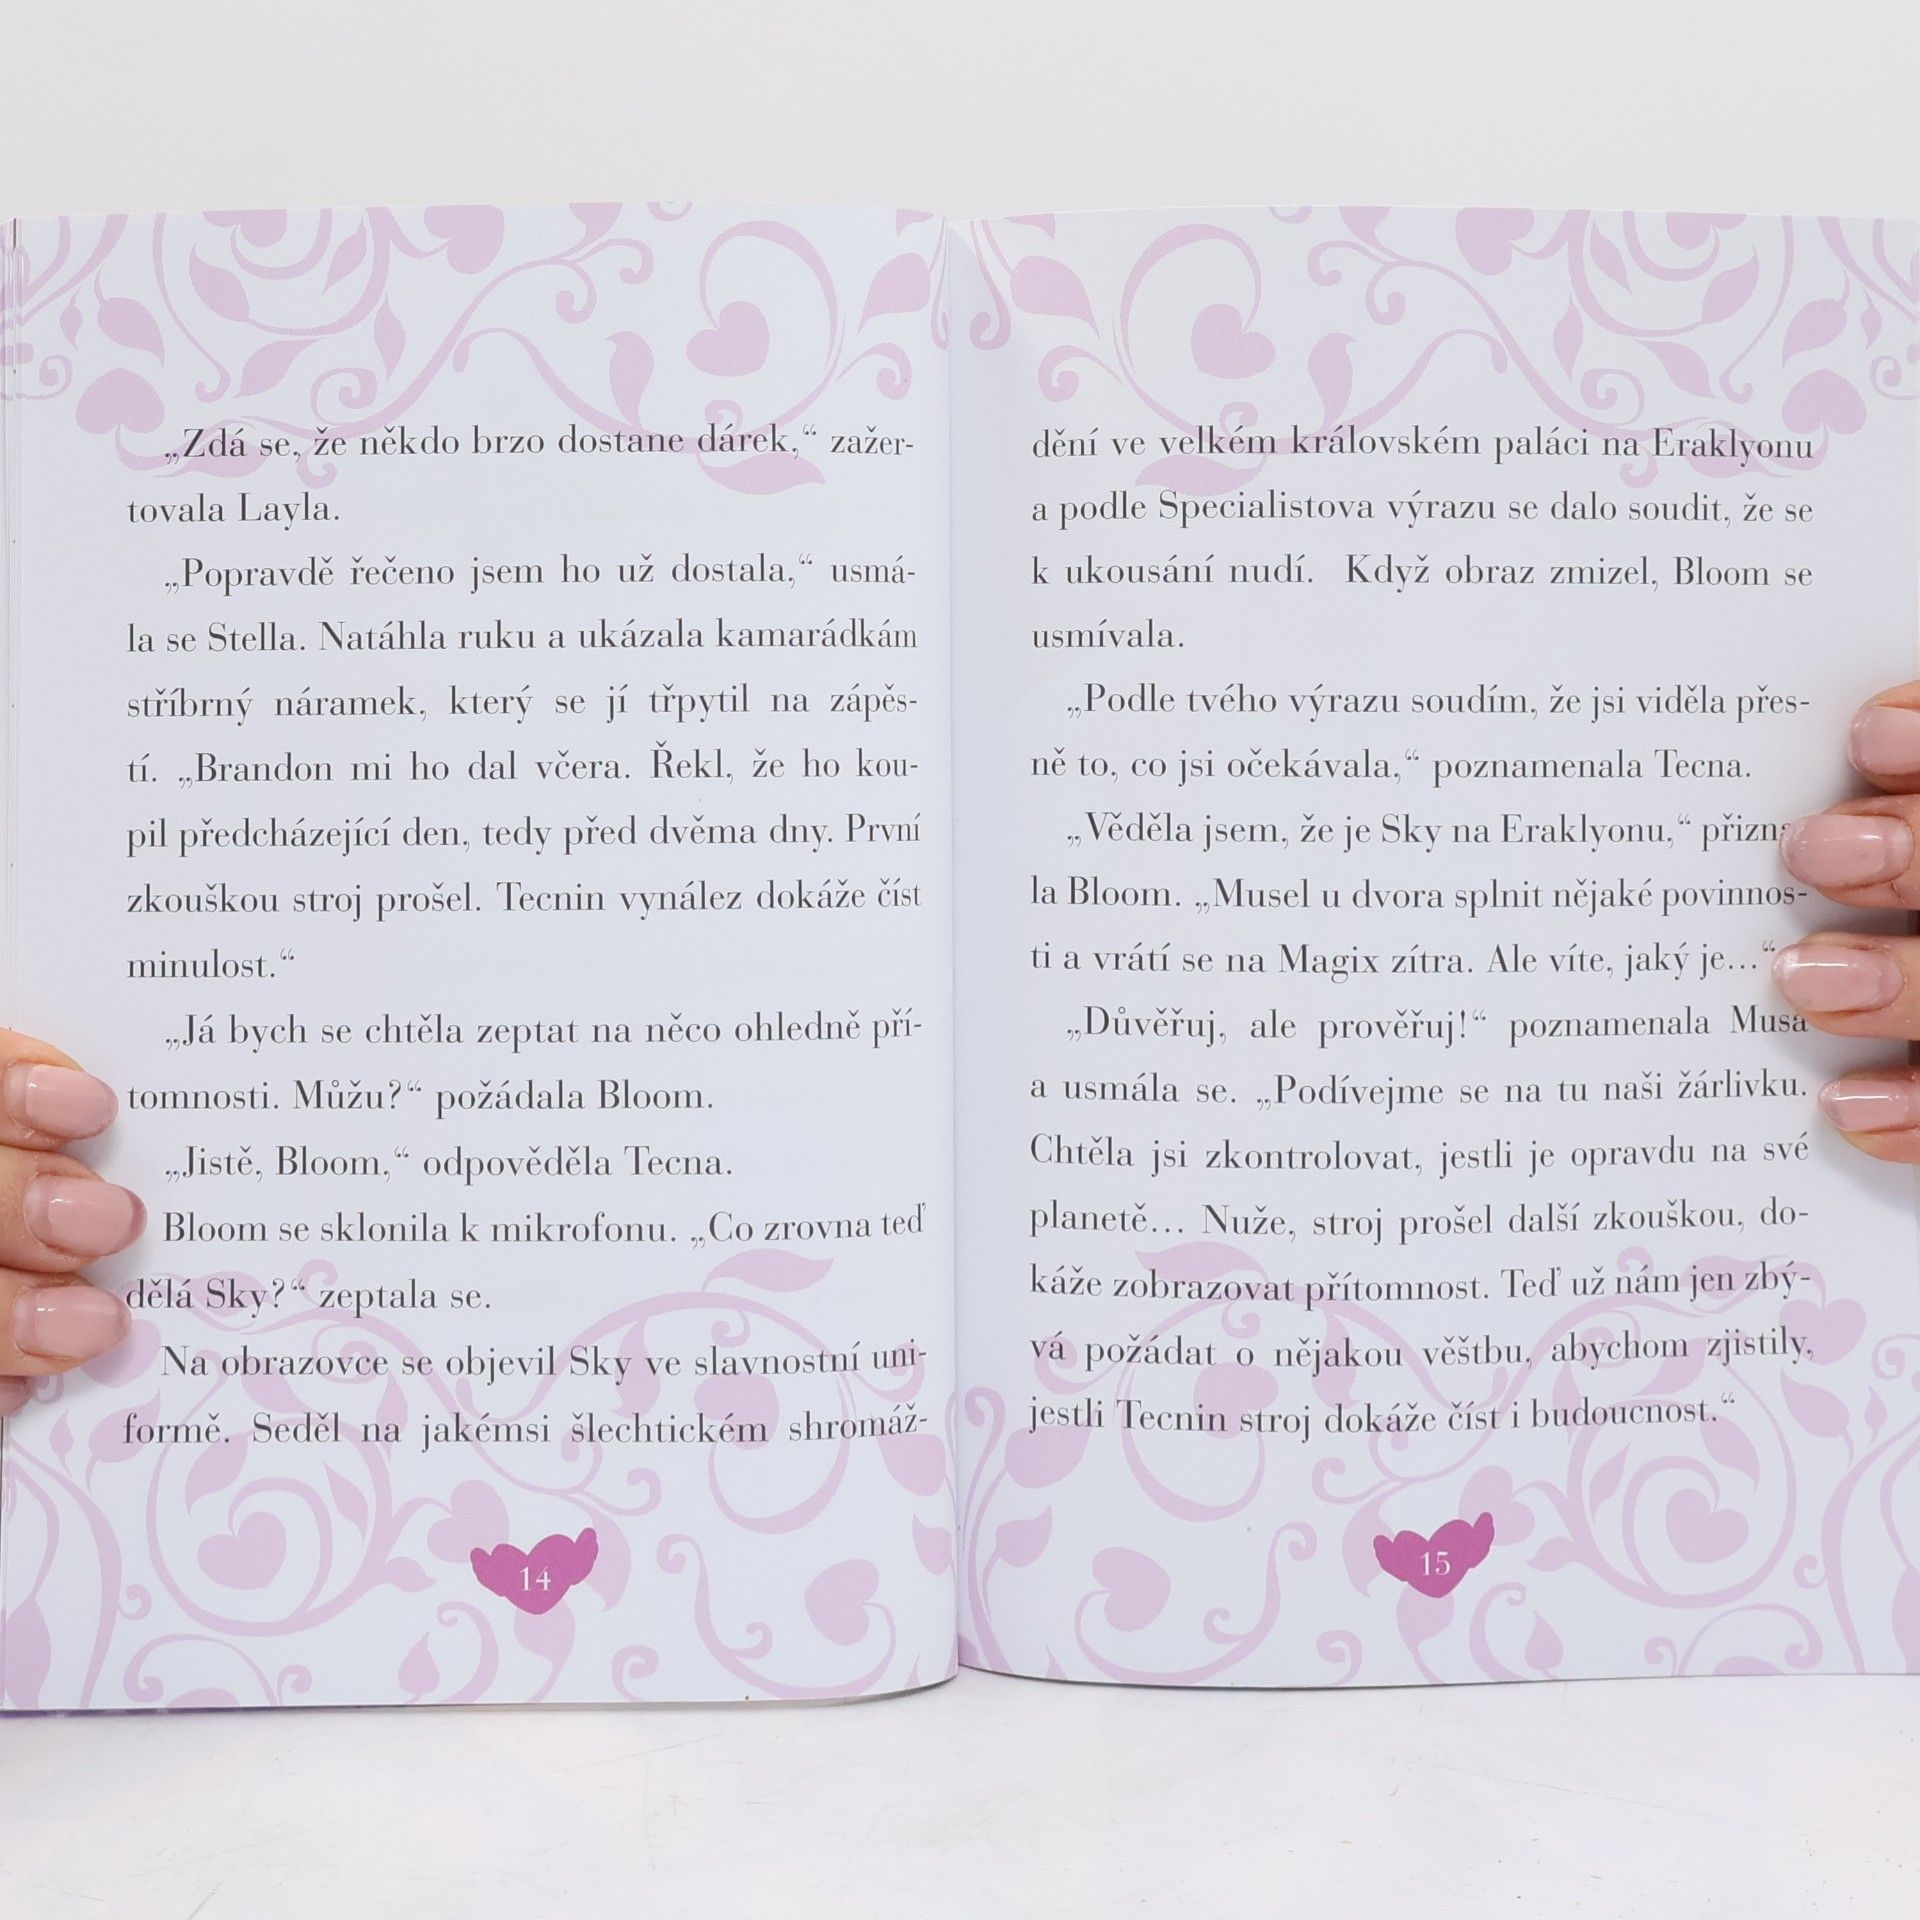 „Zdá se, že někdo brzo dostane dárek,“ zažer-
tovala Layla.
„Popravdě řečeno jsem ho už dostala,“ usmá-
la se Stella. Natáhla ruku a ukázala kamarádkám
stříbrný náramek, který se jí třpytil na zápěs-
tí. „Brandon mi ho dal včera. Řekl, že ho kou-
pil předcházející den, tedy před dvěma dny. První
zkouškou stroj prošel. Tecnin vynález dokáže číst
minulost.“
„Já bych se chtěla zeptat na něco ohledně pří-
tomnosti. Můžu?“ požádala Bloom.
„Jistě, Bloom,“ odpověděla Tecna.
Bloom se sklonila k mikrofonu. „Co zrovna teď
dělá Sky?“ zeptala se.
Na obrazovce se objevil Sky ve slavnostní uni-
formě. Seděl na jakémsi šlechtickém shromáž-
14
dění ve velkém královském paláci na Eraklyonu
a podle Specialistova výrazu se dalo soudit, že se
k ukousání nudí. Když obraz zmizel, Bloom se
usmívala.
„Podle tvého výrazu soudím, že jsi viděla přes-
ně to, co jsi očekávala,“ poznamenala Tecna.
„Věděla jsem, že je Sky na Eraklyonu,“ přizna
la Bloom. „Musel u dvora splnit nějaké povinnos-
ti a vrátí se na Magix zítra. Ale víte, jaký je...“
„Důvěřuj, ale prověřuj!“ poznamenala Musa
a usmála se. „Podívejme se na tu naši žárlivku.
Chtěla jsi zkontrolovat, jestli je opravdu na své
planetě... Nuže, stroj prošel další zkouškou, do-
káže zobrazovat přítomnost. Teď už nám jen zbý-
vá požádat o nějakou věštbu, abychom zjistily,
jestli Tecnin stroj dokáže číst i budoucnost.“
15